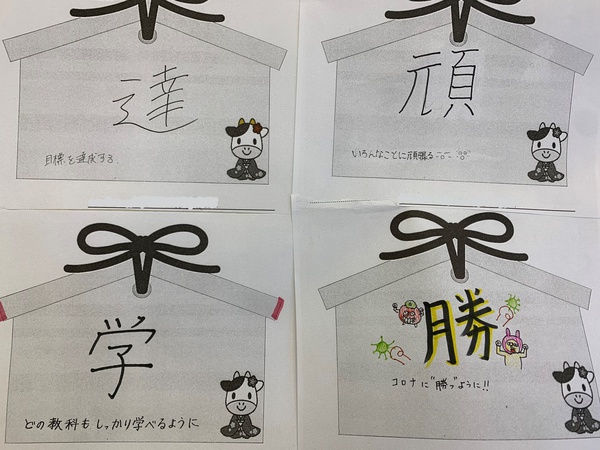 達
目標を達成する
頑
いろんなことに頑張る
学
どの教科もしっかり学べるように
勝
コロナに"勝つ"ように!!